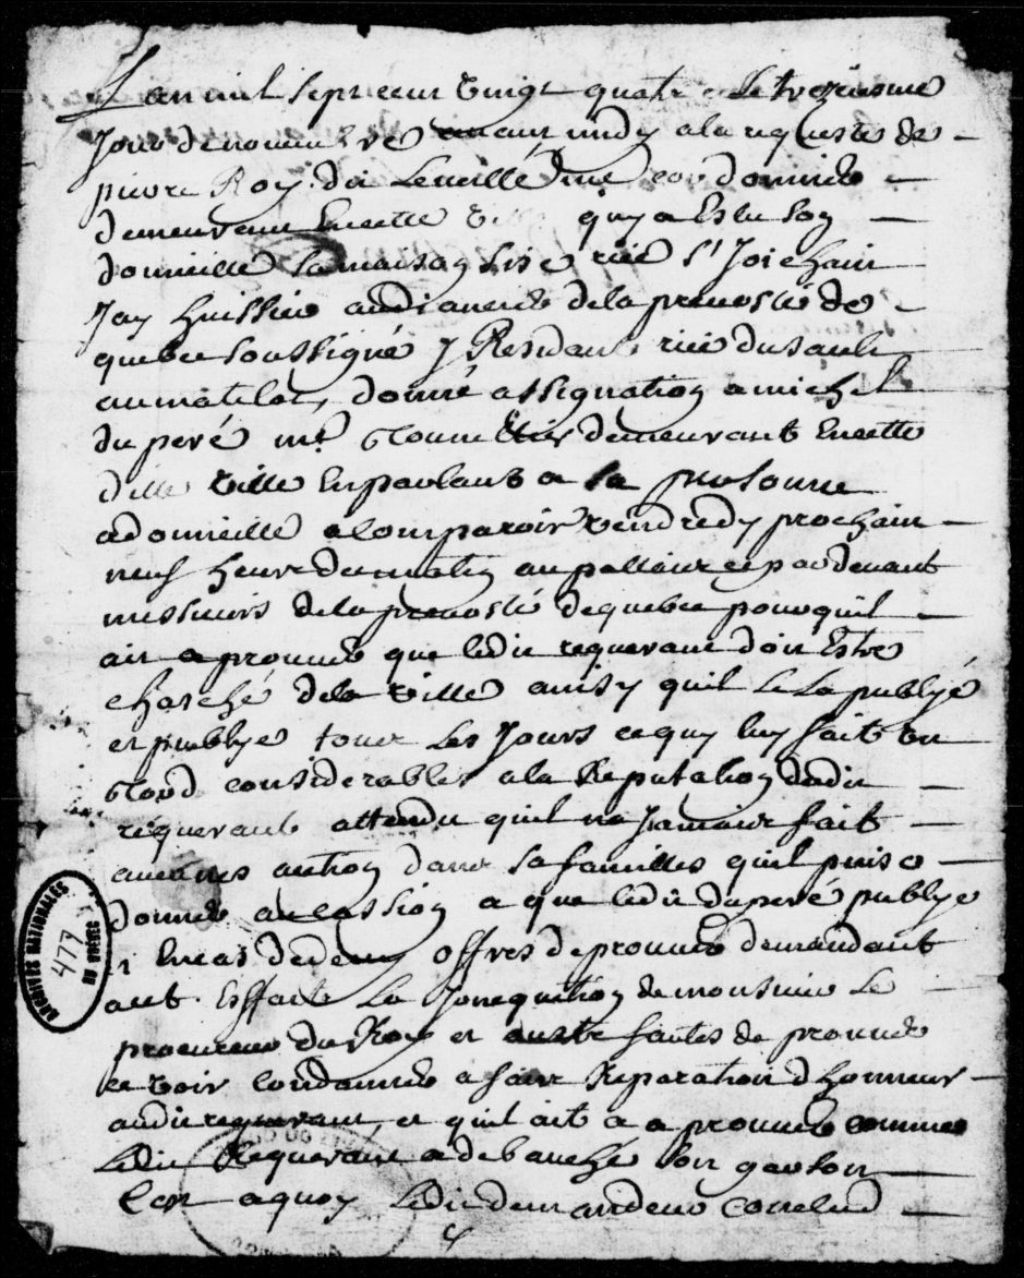 Lan mil sept cent vingt quatre le treziesme
Jour de novembre avant midy a la requeste de
pierre Roy dit Leveillé me cordonnier
demeurant En cette ville quy a Eslu son
domicille sa maison sise rüe St Joiehain
Jay huissier audiancier de la prevosté de
quebec soussigné y Residant rüe du sault
au matelot, donné assignation a michel
du peré me demeurant En cette
ditte ville En parlant a sa personne
a domicille a Comparoir vendredy prochain
neuf heure du matin au pallaix et par devant
messieurs de la prevosté de quebec pour quil
ait a prouver que ledit requerant doit Estre
chasché de la ville ainsy quil Le La publyé
et publye tout Les Jours ce quy luy fait un
tord considerables a la Reputation dudit
requerant attendu quil na Jamaix fait
aucunes action dans sa familles quil puise
donner aucassion a que ledit du peré publye
En cas de deny offres de prouver demandant
aut Effait La Joncquition de monsieur Le
procureur du Roy et autre fautes de prouver
ce voir condamner a faire Reparation dhonneur
audit requerant, et quil ait a prouver comme
Ledit Requerant a debauché son garson
Cest a quoy Ledit demandeur Conclud
ARCHIVES NATIONALES
477
DU QUÉBEC